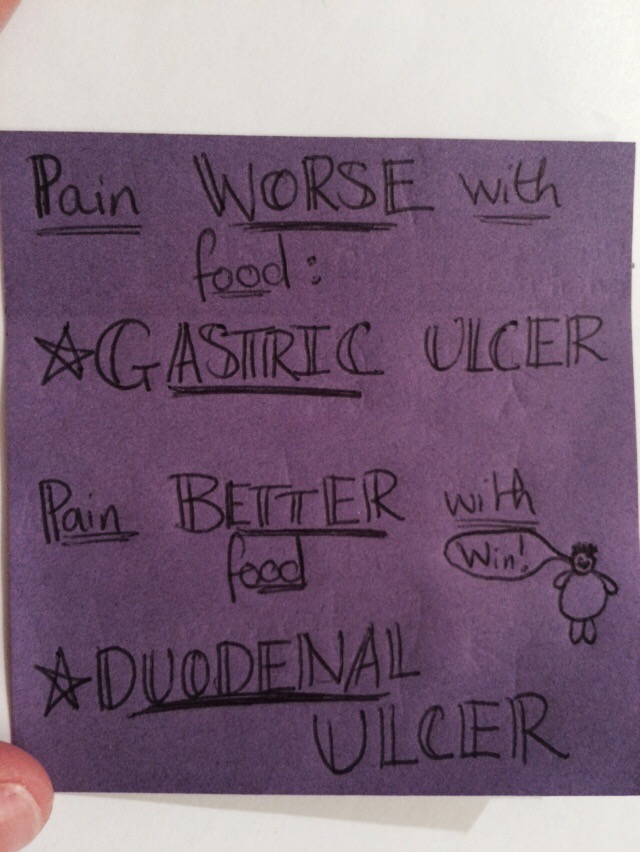 Pain WORSE with
food:
☆GASTRIC ULCER
Pain BETTER with
food
Win!
☆DUODENAL
ULCER